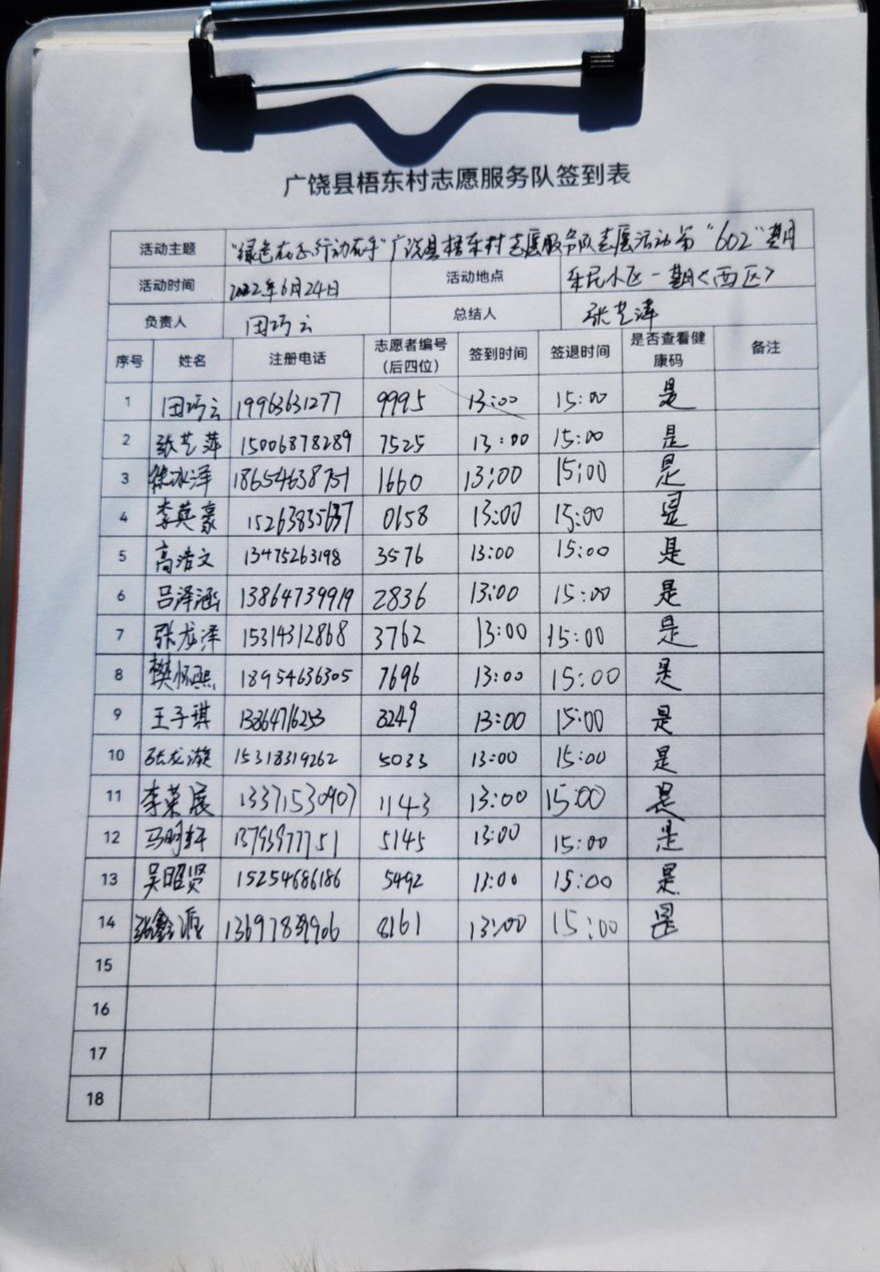 广饶县梧东村志愿服务队签到表
活动主题 "绿色在心行动在手"广饶县梧东村志愿服务队志愿活动第"602"期
活动时间 2022年6月24日 活动地点 乐民小区一期<西区>
负责人 田巧云 总结人 张艺萍
序号 姓名 注册电话 志愿者编号(后四位) 签到时间 签退时间 是否查看健康码 备注
1 田巧云 19963631277 9995 13:00 15:00 是
2 张艺萍 15006878289 7525 13:00 15:00 是
3 徐冰泽 18654638751 1660 13:00 15:00 是
4 李英豪 0158 13:00 15:00 是
5 高浩文 13475263198 3576 13:00 15:00 是
6 吕泽涵 13864739919 2836 13:00 15:00 是
7 张龙泽 15314312868 3762 13:00 15:00 是
8 樊怀熙 18954636305 7696 13:00 15:00 是
9 王子琪 13864716253 3249 13:00 15:00 是
10 张龙漩 15318319262 5033 13:00 15:00 是
11 李荣展 13371530907 1143 13:00 15:00 是
12 马明轩 13793977751 5145 13:00 15:00 是
13 吴昭贤 15254686186 5492 13:00 15:00 是
14 张鑫源 8161 13:00 15:00 是
15
16
17
18